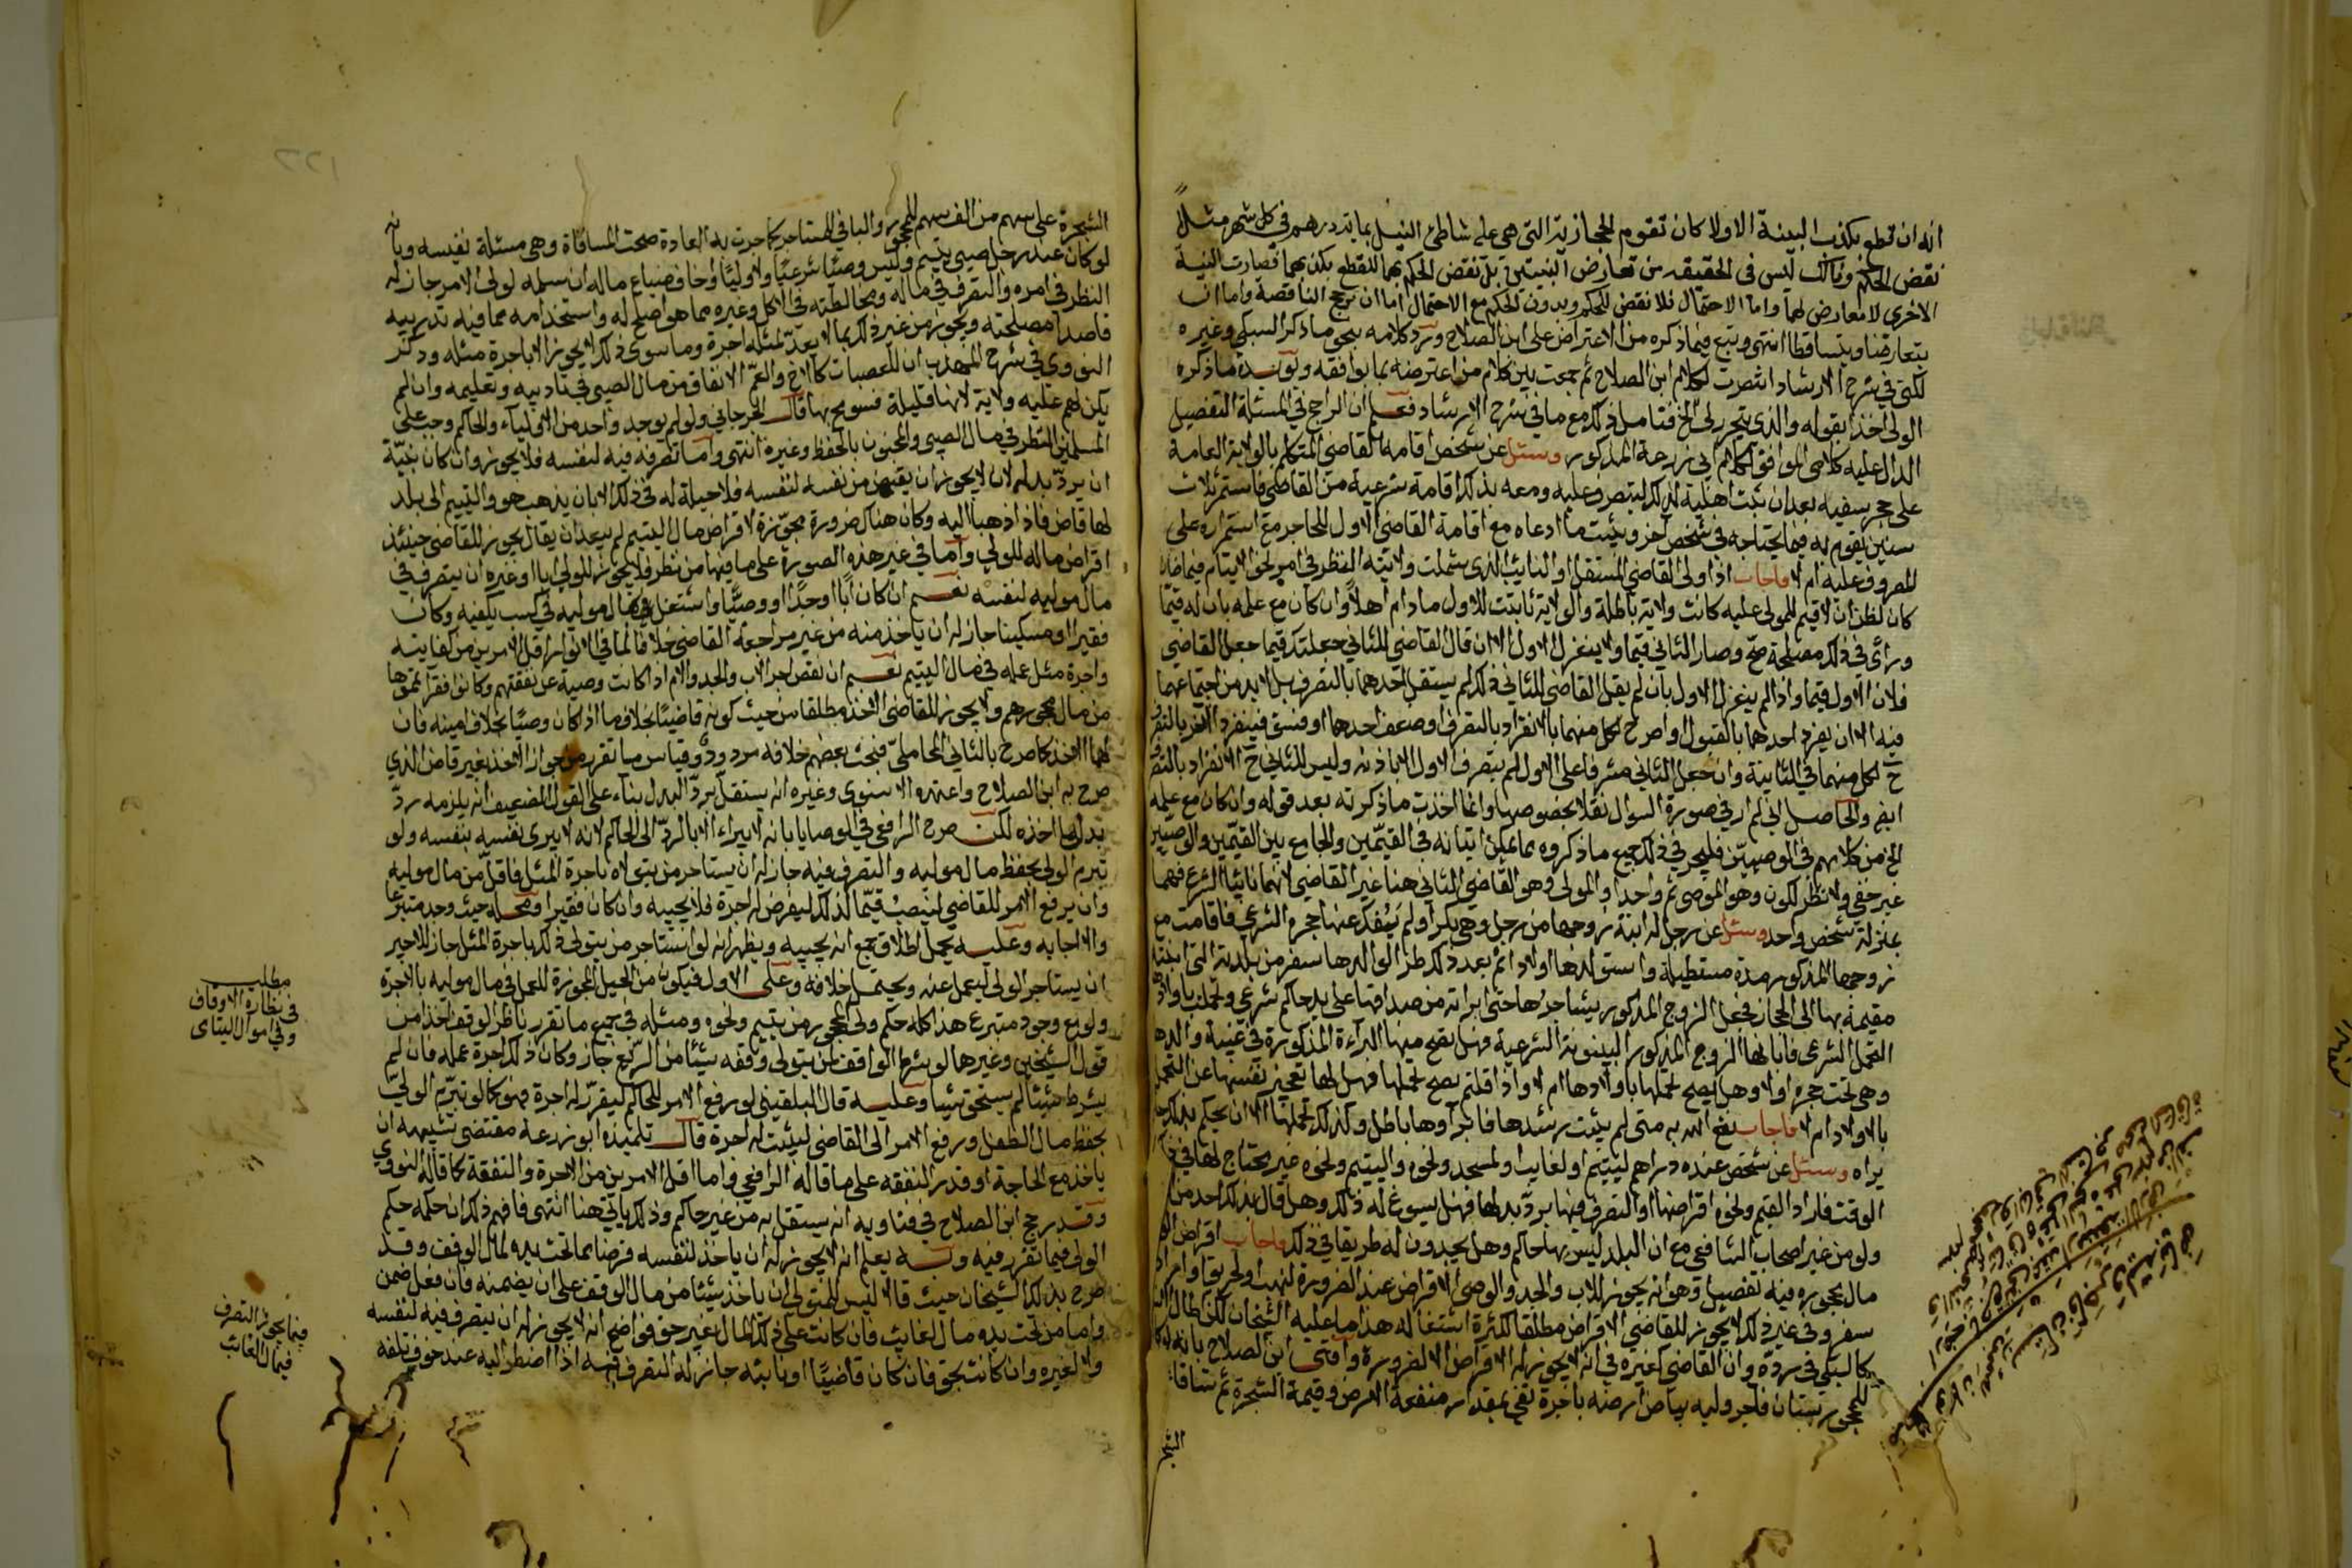 انه ان قطع بكذب البينة الاولا كان تقوم الحجازية التي هي على شاطئ النيل بماية درهم في كل شهر مثلا
نقض الحكم وذلك ليس في الحقيقه من تعارض البينتين بل نقض الحكم بهما للقطع بكذبهما فصارت البينة
الاخرى لا معارض لها واما الاحتمال فلا نقض للحكم وبدون الحكم مع الاحتمال اما ان نرجح الناقصة واما ان
يتعارضا ويتساقطا انتهى وتبع فيما ذكره من الاعتراض على ابن الصلاح ورد كلامه بنحو ما ذكر السبكي وغيره
لكني في شرح الارشاد انتصرت لكلام ابن الصلاح ثم جمعت بين كلام من اعترضه بما يوافقه ويؤيده ما ذكره
الولي اخذا بقوله والذي يتحرر لي الخ فتامل ذلك مع ما في شرح الارشاد فعلم ان الراجح في المسئلة التفصيل
الدال عليه كلامي الموافق لكلام ابي زرعة المذكور وسئل عن شخص اقامه القاضي المتكلم بالولاية العامة
على حجر سفيه بعد ان ثبت اهلية لذلك ليتصرف عليه ومعه بذلك اقامة شرعية من القاضي فاستمر ثلاث
سنين يقوم له فيما يحتاجه في شخص اخر ويثبت ما ادعاه مع اقامة القاضي الاول للحاجر مع استمراره على
المصروف عليه ام لا فاجاب اذا ولى القاضي المستقل او النايب الذي شملت ولايته النظر في امر نحو الايتام فيما
كان لظن ان لا قيم للمولى عليه كانت ولاية باطلة والولاية ثابتت للاول ما دام اهلا وان كان مع علمه بان له قيما
ورأى في ذلك مصلحة صح وصار الثاني قيما ولا ينعزل الاول الا ان قال القاضي للثاني جعلتك قيما جعل القاضي
فلان الاول قيما واذا لم ينعزل الاول بان لم يقل القاضي للثاني ذلك لم يستقل احدهما بالتصرف بل لا بد من اجتماعهما
فيه الا ان يفرد احدهما بالقبول او صرح لكل منهما بالانفراد بالتصرف او ضعف احدهما او فسق فينفرد الاخر بالتصرف
ح لكل منهما في الثانية وان جعل الثاني مشرفا على الاول لم يتصرف الاول الا باذنه وليس للثاني ح الانفراد بالتصرف
ايض والحاصل اني لم ار في صورة السؤال نقلا بخصوصها وانما اخذت ما ذكرته بعد قوله وان كان مع علمه
الخ من كلامهم في الوصيين فليجر في ذلك جميع ما ذكروه مما يمكن اتيانه في القيمين والجامع بين القيمين والوصيين
غير خفي ولا نظر لكون وهو الموصي ثم واحدا والمولى وهو القاضي الثاني هنا غير القاضي لانهما نائبا الشرع فهما
بمنزلة شخص واحد وسئل عن رجل له ابنة زوجها من رجل وهي بكر ولم ينفك عنها حجره الشرعي فاقامت مع
زوجها المذكور مدة مستطيلة واستولدها اولادا ثم بعد ذلك طرا لوالدها سفر من بلدته التي ابنته
مقيمة بها الى الحجاز فجعل الزوج المذكور يشاجرها حتى ابراته من صداقها على يد حاكم شرعي وتحمل باولاده
التحمل الشرعي فابانها الزوج المذكور البينونة الشرعية فهل تصح منها البراءة المذكورة في غيبة والدها
وهي تحت حجره او لا وهل يصح تحملها باولادها ام لا واذا قلتم يصح تحملها فهل لها تعجيز نفسها عن التحمل
بالاولاد ام لا فاجاب نفع الله به متى لم يثبت رشدها فابراؤها باطل وكذلك تحملها الا ان يحكم بذلك
يراه وسئل عن شخص عنده دراهم ليتيم او لغايب او لمسجد ونحوه واليتيم ونحوه غير محتاج لها في
الوقت فاراد القيم ونحوه اقراضها او التصرف فيها برد بدلها فهل يسوغ له ذلك وهل قال بذلك احد من
ولو من غير اصحاب الشافعي مع ان البلد ليس بها حاكم وهل يجدون له طريقا في ذلك فاجاب اقراض
مال محجوره فيه تفصيل وهو انه يجوز للاب والجد والوصي الاقراض عند الضرورة لنهب او حريق او اراد
سفر وفي غير ذلك لا يجوز للقاضي الاقراض مطلقا لكثرة اشتغاله هذا ما عليه الشيخان لكن اطال
كالسبكي في رده وان القاضي كغيره في انه لا يجوز له الاقراض الا لضرورة وافتى ابن الصلاح بانه لو كان
للمحجور بستان فاجر وليه بياض ارضه باجرة تفي بمقدار منفعة الارض وقيمة الشجرة ثم ساقاه
الشجر
الشجرة على سهم من الف سهم للمحجور والباقي للمستاجر كما جرت به العادة صحت المساقاة وهي مسئلة نفيسه وبانه
لو كان عند رجل صبي يتيم وليس وصيا شرعيا ولا وليا وخاف ضياع ماله ان سلمه لولي الامر جاز له
النظر في امره والتصرف في ماله ومخالطته في الاكل وغيره مما هو اصلح له واستخدامه مما فيه تدريبه
قاصدا مصلحته ويجوز من غير ذلك بما لا يعد لمثله اجرة وما سوى ذلك لا يجوز الا باجرة مثله وذكر
النووي في شرح المهذب ان للعصبات كالاخ والعم الانفاق من مال الصبي في تاديبه وتعليمه وان لم
يكن لهم عليه ولاية لانها قليلة فسومح بها قال الجرجاني ولو لم يوجد واحد من الاولياء والحاكم وجب على
المسلمين النظر في مال الصبي والمجنون بالحفظ وغيره انتهى واما تصرفه فيه لنفسه فلا يجوز وان كان بنية
ان يرد بدله لان لا يجوز ان يقبض من نفسه لنفسه فلا حيلة له في ذلك الا بان يذهب هو واليتيم الى بلد
لها قاض فاذا ذهبا اليه وكان هناك ضرورة مجوزة لاقراض مال اليتيم لم يبعد ان يقال يجوز للقاضي حينئذ
اقراض ماله للولي واما في غير هذه الصورة على ما فيها من نظر فلا يجوز للولي ابا او غيره ان يتصرف في
مال موليه لنفسه نعم ان كان ابا او جدا او وصيا واشتغل بمال موليه في كسب يكفيه وكان
فقيرا او مسكينا جاز له ان ياخذ منه من غير مراجعة القاضي خلافا لما في الانوار اقل الامرين من كفايته
واجرة مثل عمله في مال اليتيم نعم ان نقص اجر الاب والجد والام اذا كانت وصية عن نفقتهم وكانوا فقرا تمموها
من مال محجورهم ولا يجوز للقاضي الاخذ مطلقا من حيث كونه قاضيا بخلاف ما اذا كان وصيا بخلاف امينه فان
لهما الاخذ كما صرح بالثاني المحاملي فبحث بعضهم خلافه مردود وقياس ما تقرر من جواز الاخذ لغير قاض الذي
صرح به ابن الصلاح واعتمده الاسنوي وغيره انه يستقل برد البدل بناء على القول الضعيف انه يلزمه رد
بدل ما اخذه لكن صرح الرافعي في الوصايا بانه لا يبراء الا بالرد الى الحاكم لانه لا يبري نفسه بنفسه ولو
تبرم الولي بحفظ مال موليه والتصرف فيه جاز له ان يستاجر من يتولاه باجرة المثل فاقل من مال موليه
وان يرفع الامر للقاضي لينصب قيما لذلك ليفرض له اجرة فلا يجيبه وان كان فقيرا ومحله حيث وجد متبرعا
والا اجابه وعليه يحمل اطلاق جمع انه يجيبه ويظهر انه لو استاجر من يتولى ذلك باجرة المثل جاز للاجير
ان يستاجر الولي ليعمل عنه ويحتمل خلافه وعلى الاول فيكون من الحيل المجوزة للعمل في مال موليه بالاجرة
ولو مع وجود متبرع هذا كله حكم ولي المحجور من يتيم ونحوه ومثله في جميع ما تقرر ناظر الوقف اخذا من
قول الشيخين وغيرهما لو شرط الواقف لمن يتولى وقفه شيئا من الريع جاز وكان ذلك اجرة عمله فان لم
يشرط شيئا لم يستحق شيئا وعليه قال البلقيني لو رفع الامر للحاكم ليقرر له اجرة فهو كما لو تبرم الولي
بحفظ مال الطفل ورفع الامر الى القاضي ليثبت له اجرة قال تلميذه ابو زرعة مقتضى تشبيهه ان
ياخذ مع الحاجة او قدر النفقه على ما قاله الرافعي واما اقل الامرين من الاجرة والنفقة كما قاله النووي
وقد رجح ابن الصلاح في فتاويه انه يستقل به من غير حاكم وذلك ياتي هنا انتهى فافهم ذلك ان حكمه حكم
الولي فيما تقرر فيه ومنه يعلم انه لا يجوز له ان ياخذ لنفسه قرضا مما تحت يده لمال الوقف وقد
صرح بذلك الشيخان حيث قالا ليس للمتولي ان ياخذ شيئا من مال الوقف على ان يضمنه فان فعل ضمن
واما من تحت يده مال لغايب فان كانت على ذلك المال بغير حق فواضح انه لا يجوز له ان يتصرف فيه لنفسه
ولا لغيره وان كانت بحق فان كان قاضيا او نايبه جاز له التصرف فيه اذا اضطر اليه عند خوف تلفه
مطلب
في نظارة الاوقاف
وفي اموال اليتامى
فيما يجوز التصرف
في مال الغائب